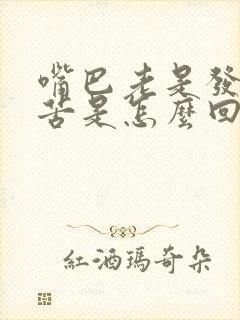 嘴巴老是發
苦是怎麼回
紅酒瑪奇朵